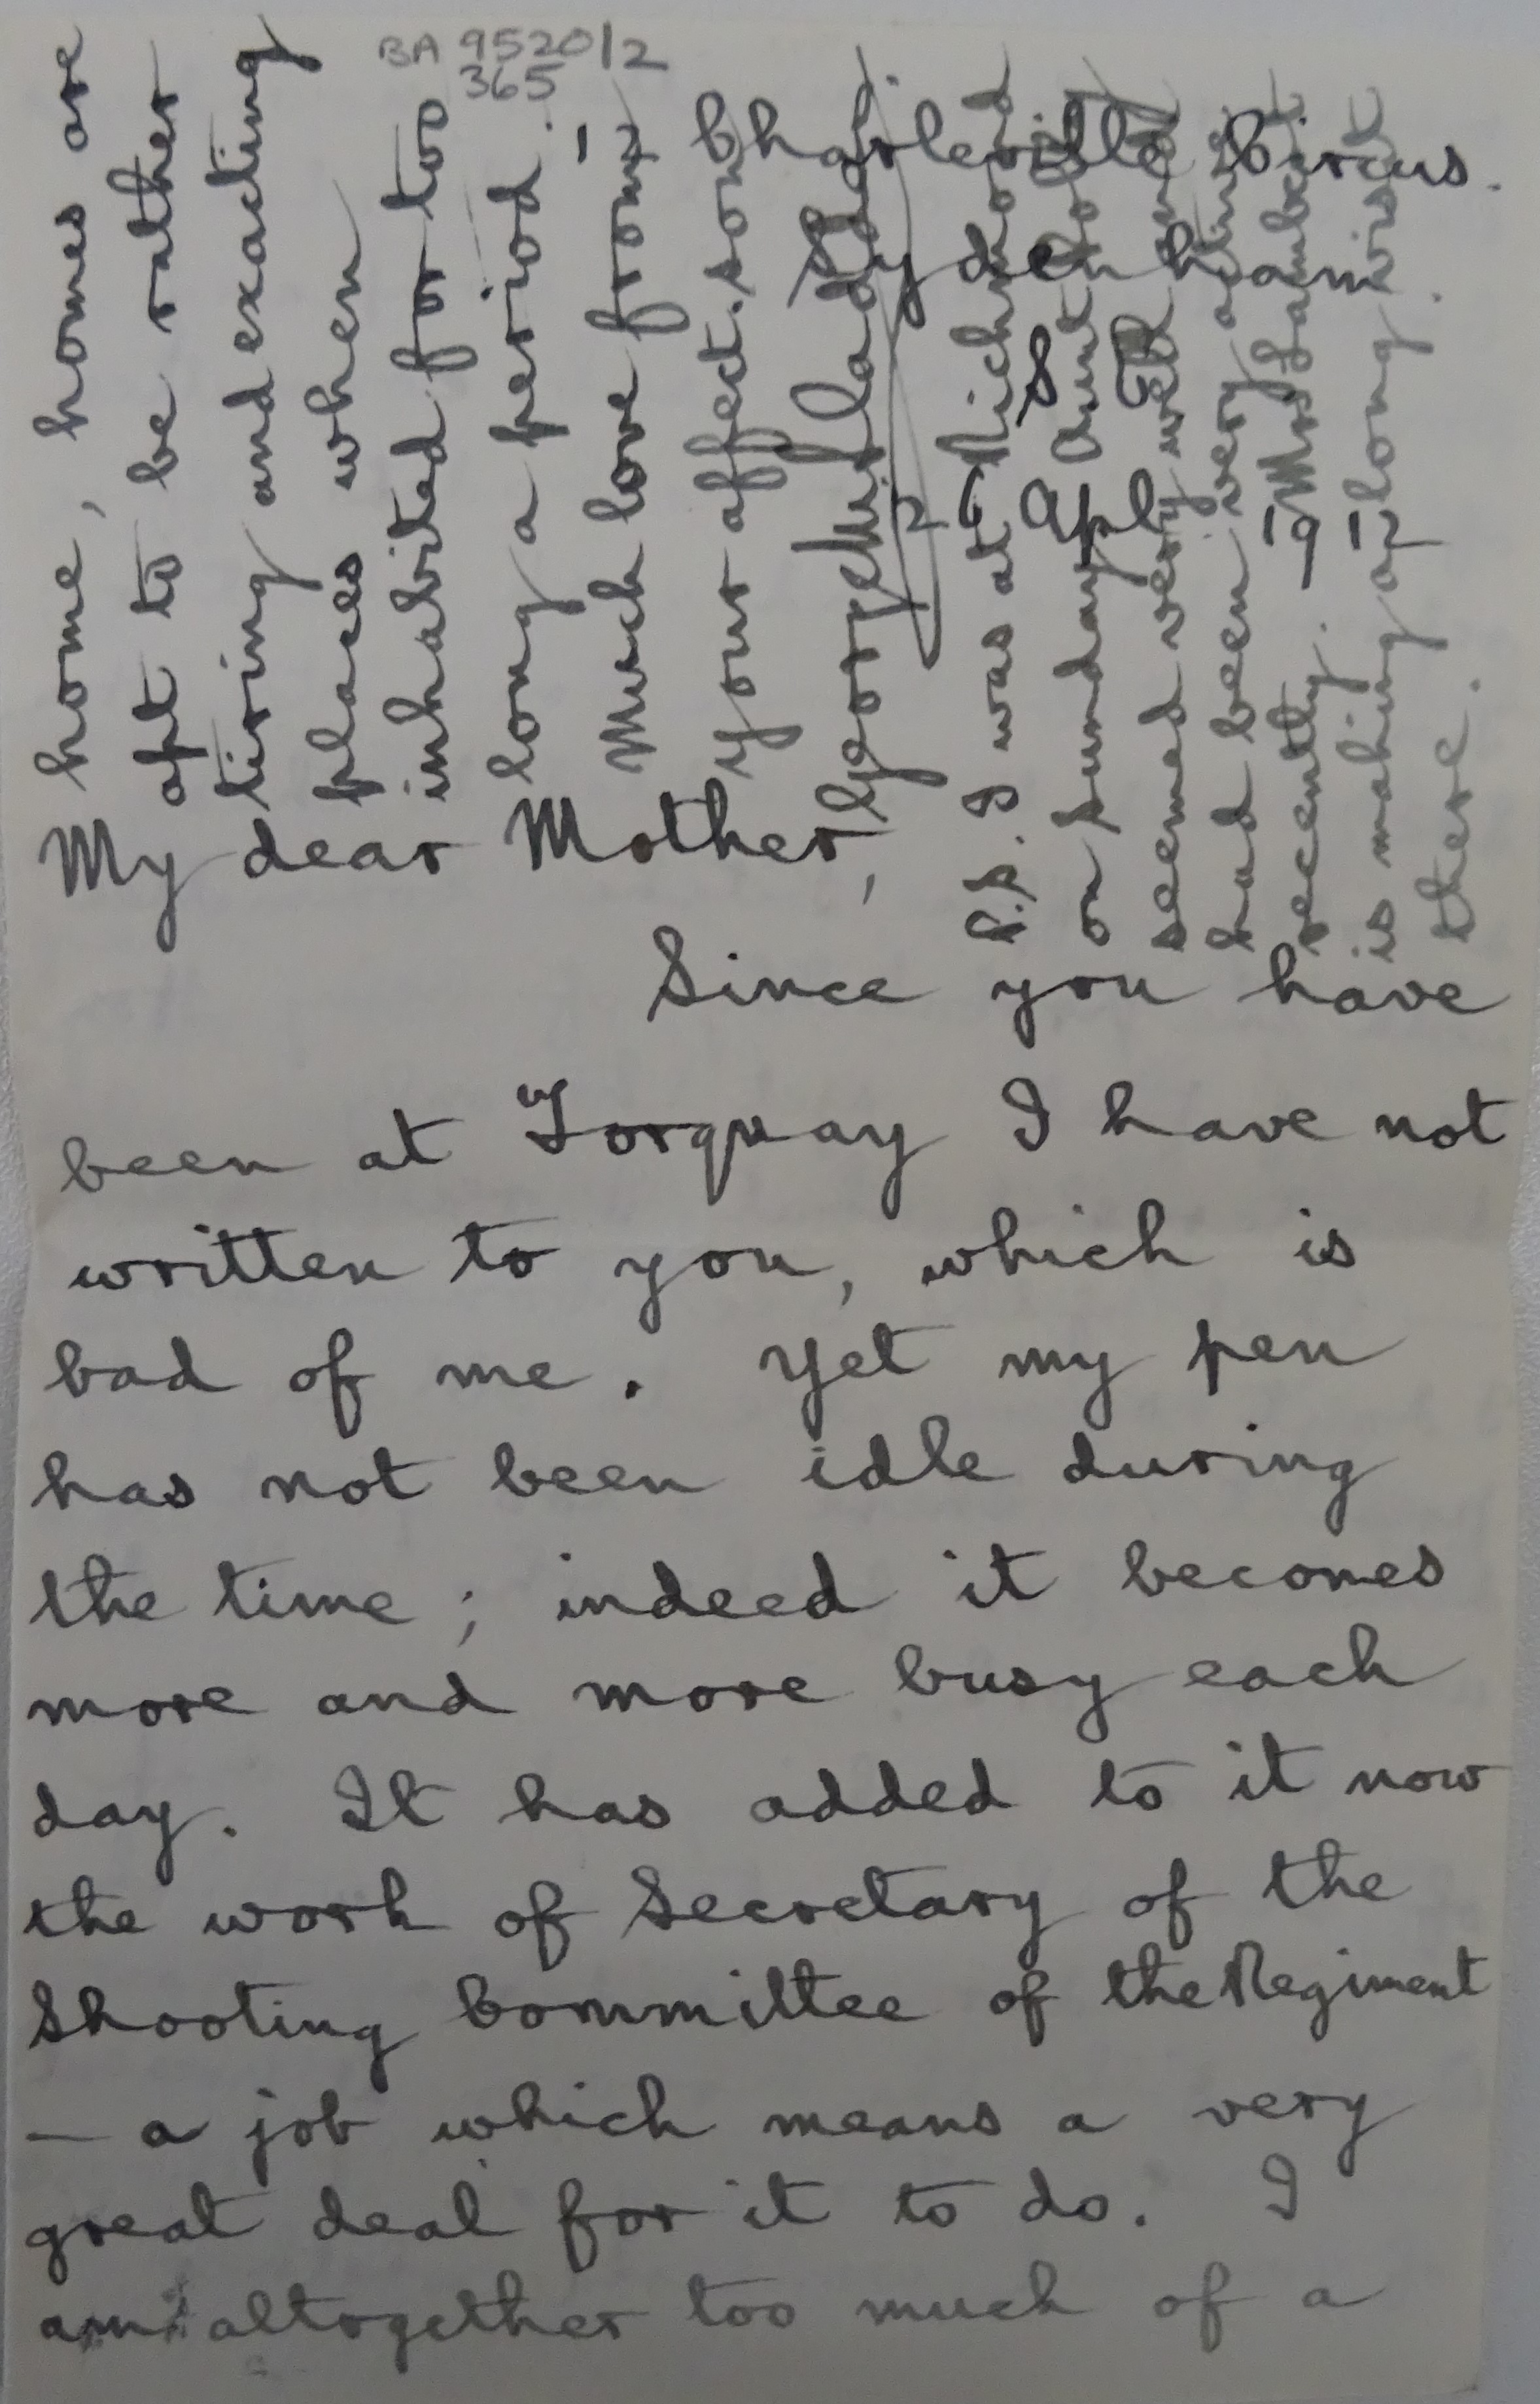 BA 9520/2
365
Charleville Circus.
Sydenham.
S. E.
26 Apl
My dear Mother,
Since you have
been at Torquay I have not
written to you, which is
bad of me. Yet my pen
has not been idle during
the time; indeed it becomes
more and more busy each
day. It has added to it now
the work of Secretary of the
Shooting Committee of the Regiment
— a job which means a very
great deal for it to do. I
am altogether too much of a
home, homes are
apt to be rather
tiring and exacting
places when
inhabited for too
long a period. —
Much love from
your affect. son
George
P.S. I was at Richmond
on Sunday. Aunt
seemed very well and
had been very active
recently. Mrs Lambert
is making a long visit
there.